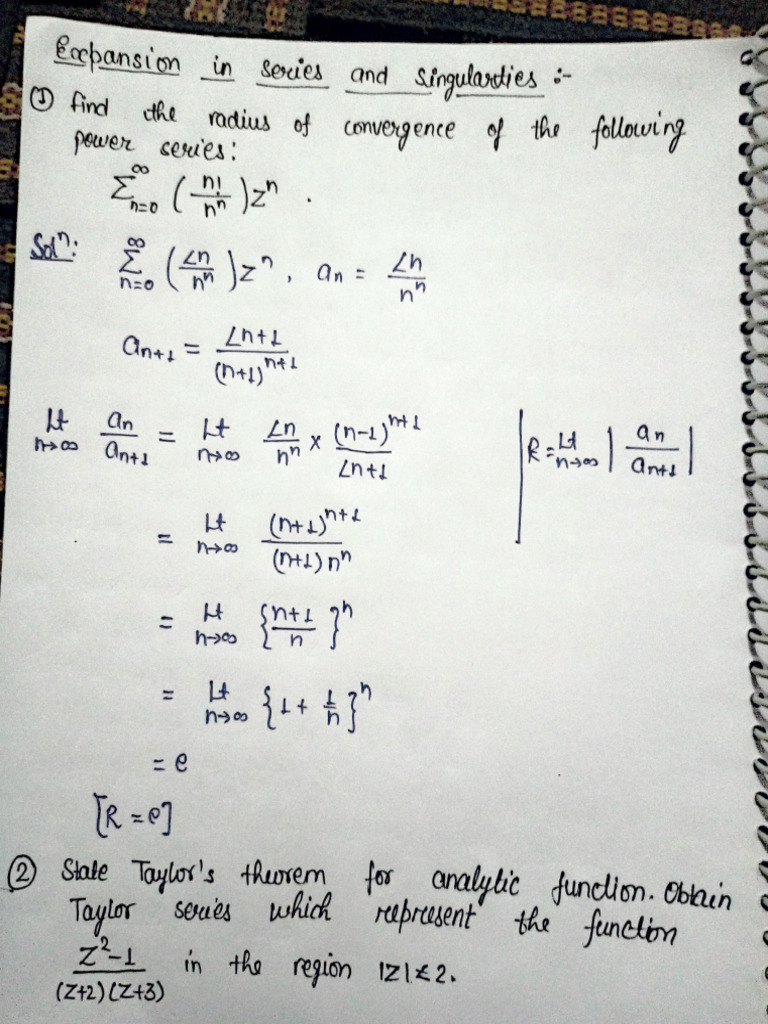 Expansion in series and Singularties :-
① find the radius of convergence of the following
power series:
∑_{n=0}^{∞} (n!/n^n) z^n .
Solⁿ: ∑_{n=0}^{∞} (∠n/n^n) z^n , a_n = ∠n/n^n
a_{n+1} = ∠n+1/(n+1)^{n+1}
Lt_{n→∞} a_n/a_{n+1} = Lt_{n→∞} ∠n/n^n × (n-1)^{n+1}/∠n+1 | R = Lt_{n→∞} |a_n/a_{n+1}|
= Lt_{n→∞} (n+1)^{n+1}/(n+1) n^n
= Lt_{n→∞} {n+1/n}^n
= Lt_{n→∞} {1 + 1/n}^n
= e
[R = e]
② State Taylor's theorem for analytic function. Obtain
Taylor series which reepresent the function
z²-1/(z+2)(z+3) in the region |z| < 2.